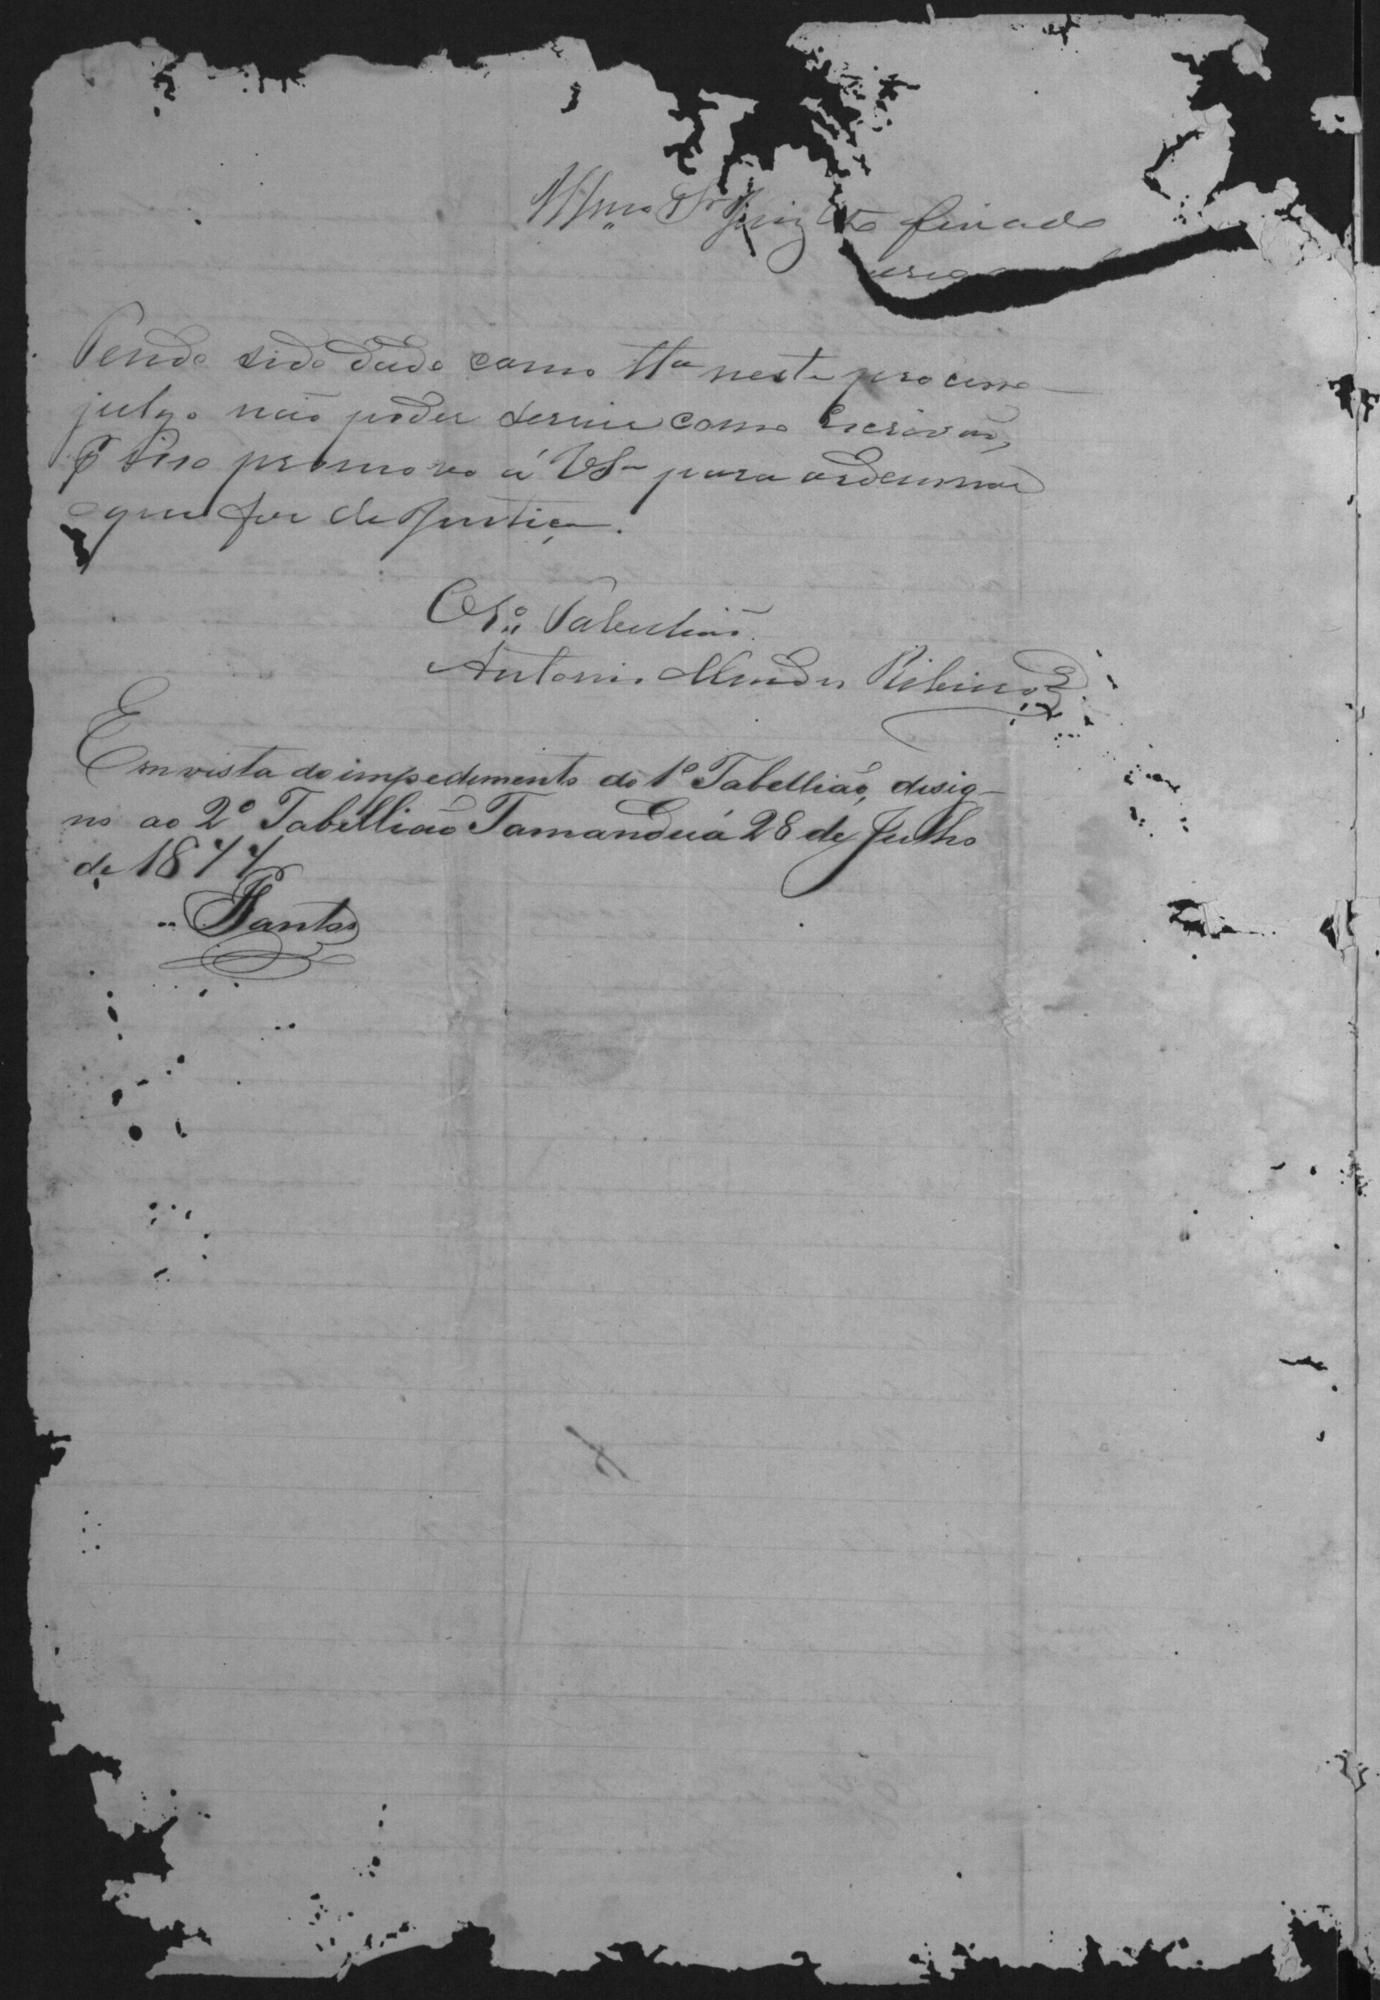 Illmo Sr Juiz
Tendo sido dado como tta neste processo
julgo não poder servir como Escrivão,
p isso promovo á VSa para ordemnar
o que for de Justiça.
O 1º Tabellião
Antonio Mendes Ribeiro
Em vista do impedimento do 1º Tabellião, desig-
no ao 2º Tabellião Tamanduá 28 de Julho
de 1877
Santos